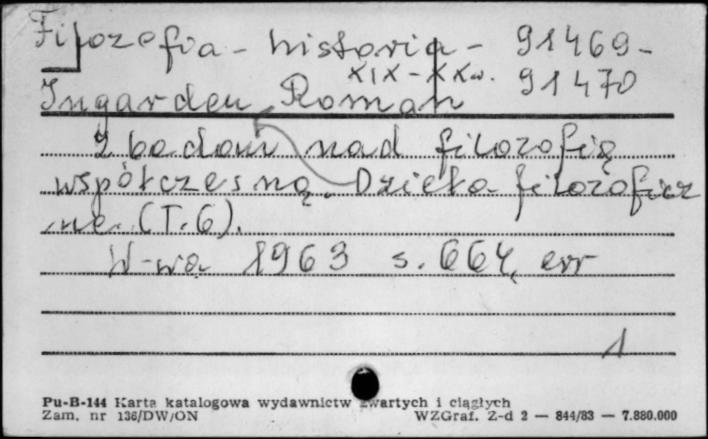 Filozofia - historia - 91469-
XIX-XXw. 91470
Ingarden Roman
Z badań nad filozofią
współczesną. Dzieła filozoficz
ne. (T. 6).
W-wa 1963 s. 664, err
1
Pu-B-144 Karta katalogowa wydawnictw zwartych i ciągłych
Zam. nr 136/DW/ON WZGraf. Z-d 2 — 844/83 — 7.880.000